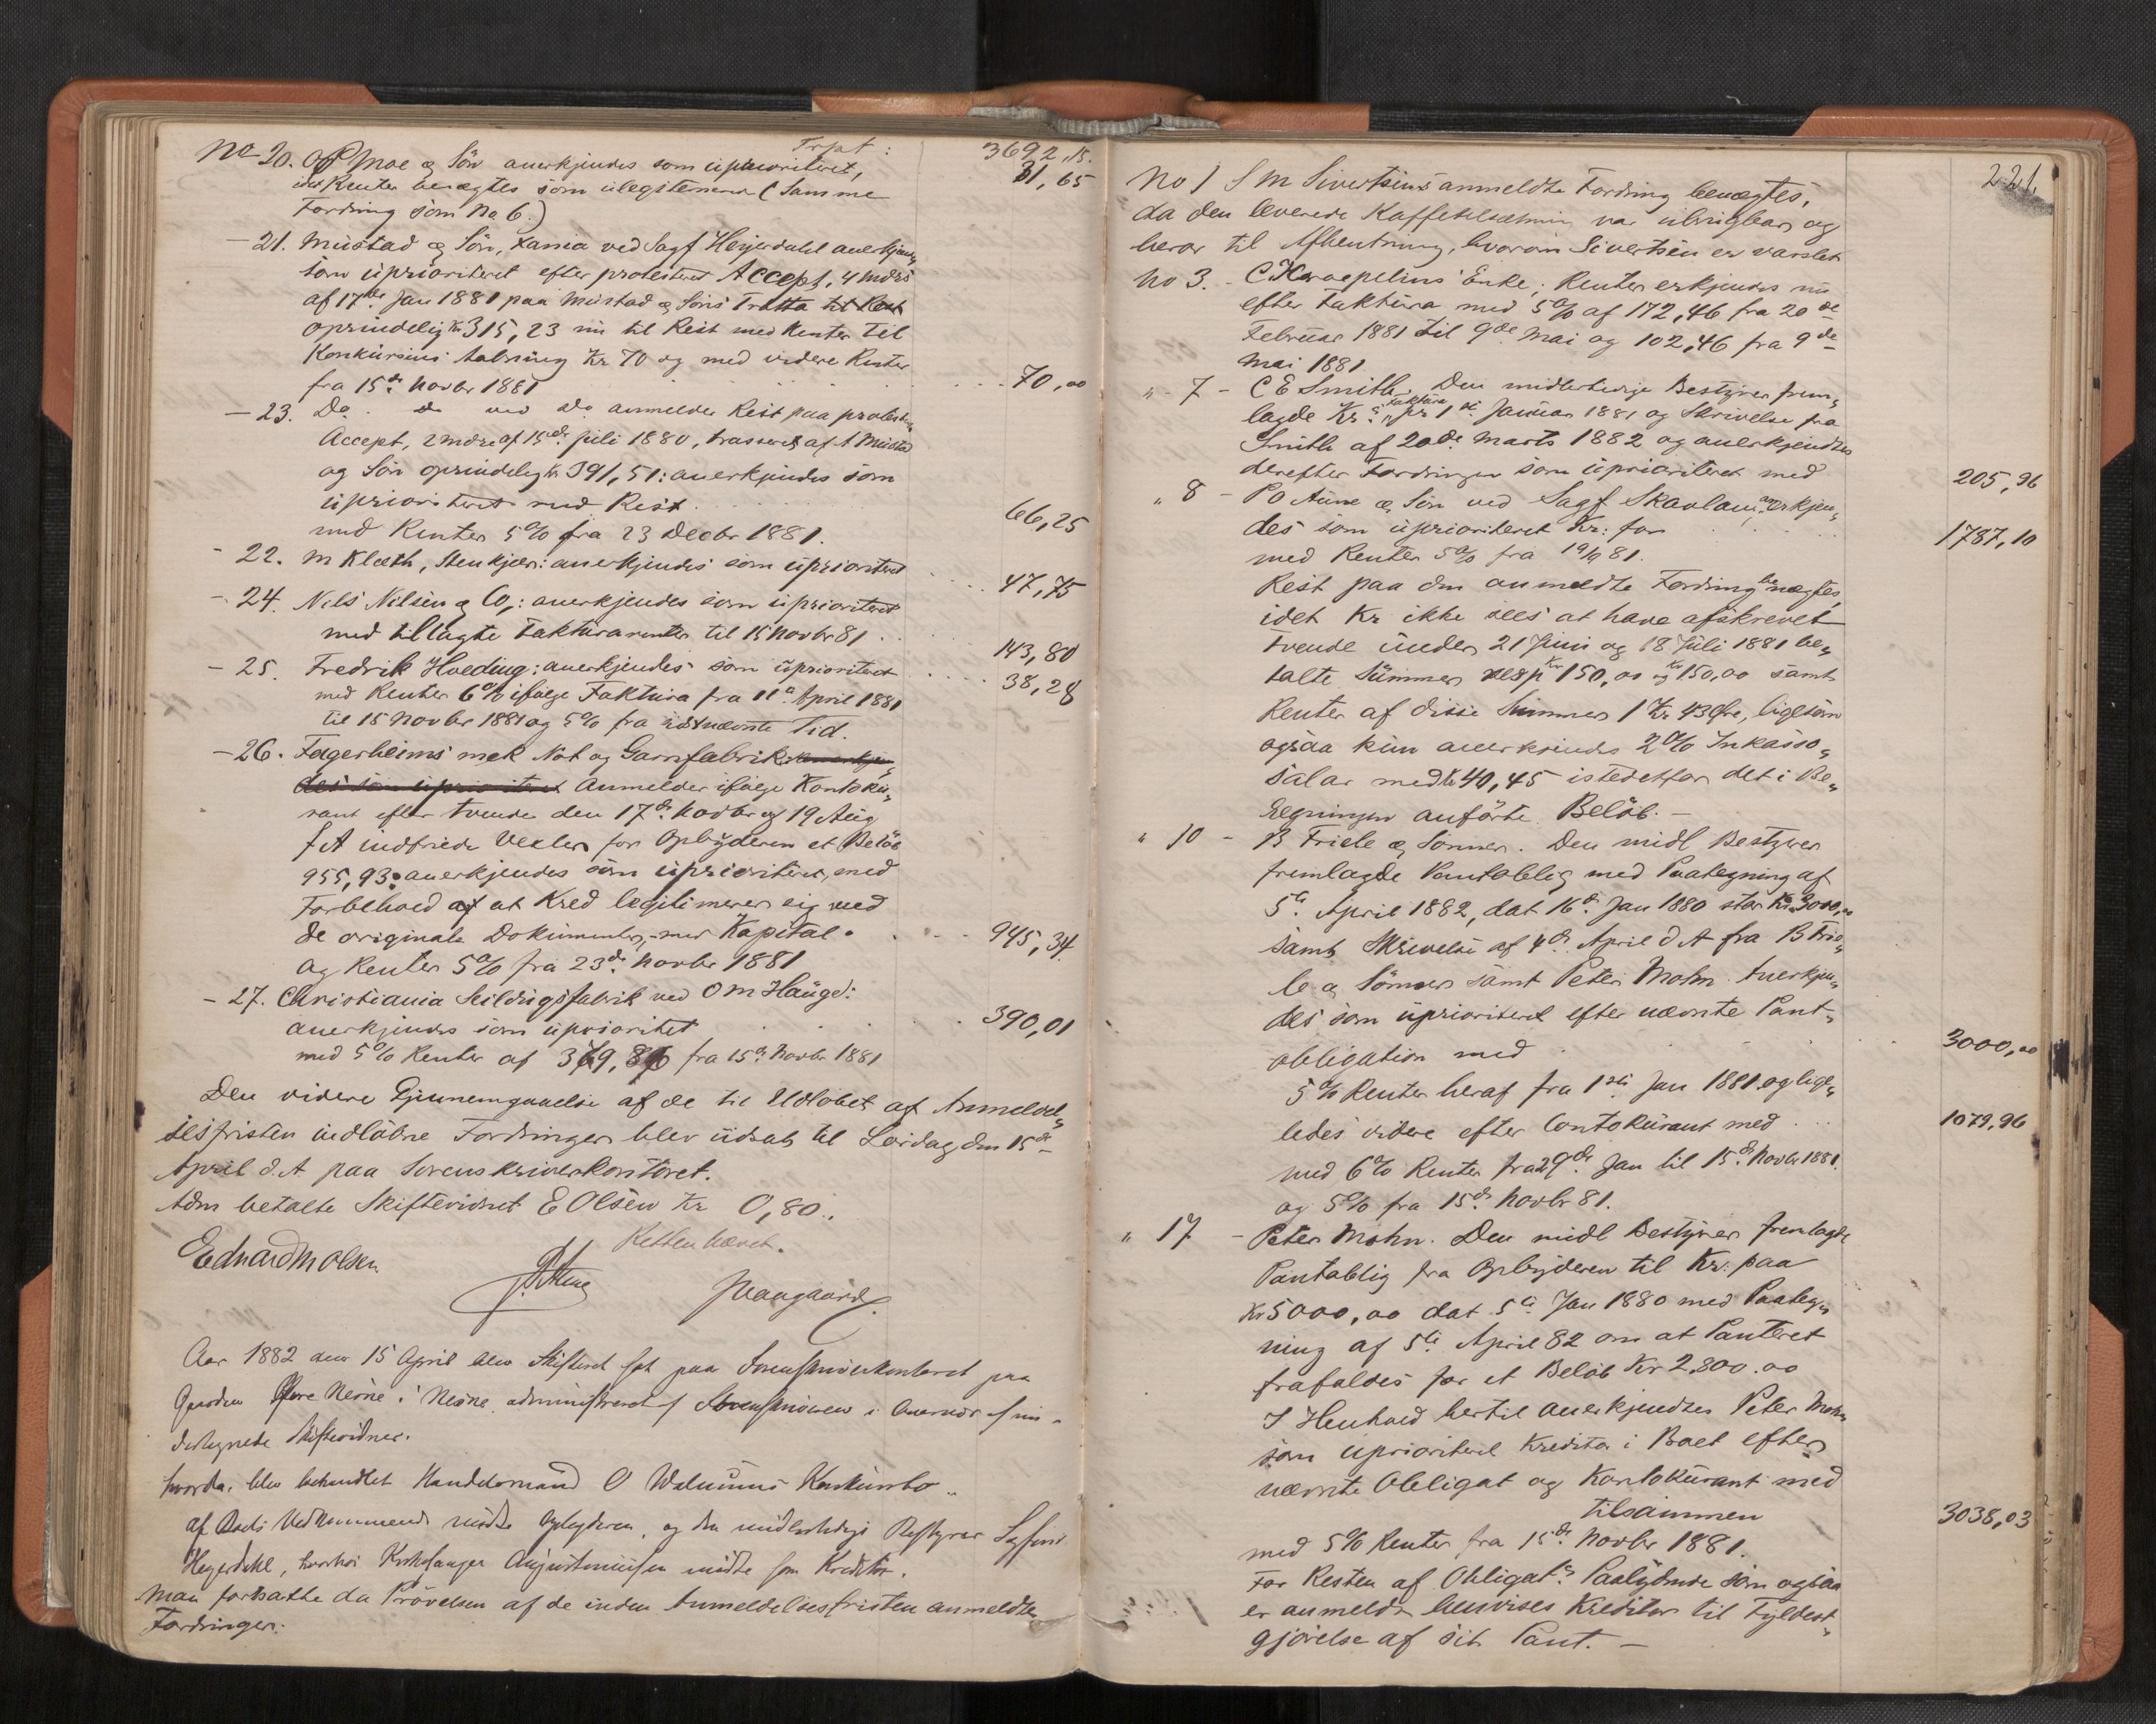 Trspt: 3692,15.
No 20. O P Moe & Sön anerkjendes som uprioriteret, 31,65
idet Renter benægtes som ulegitimeret (Samme
Fordring som No 6.)
- 21. Mustad & Sön, Xania ved Sagf Heyerdahl anerkjendes
som uprioriteret efter protesteret Accept, 4 Mdrs
af 17de Jan 1881 paa Mustad & Söns Tratta til Rest
oprindelig Kr 315,23 nu til Rest med Renter til
Konkursens Aabning Kr 70 og med videre Renter
fra 15de Novbr 1881 70,00
- 23. Do. do ved do anmelder Rest paa protesteret
Accept, 2 mdrs af 15de Juli 1880, trasseret af Mustad
og Sön oprindelig Kr 391,51: anerkjendes som
uprioriteret med Rest 66,25
med Renter 5% fra 23 Decbr 1881.
- 22. M Klæth, Stenkjær: anerkjendes som uprioriteret 47,75
- 24. Nils Nilsen & Co,: anerkjendes som uprioriteret
med tillagte Fakturarenter til 15 Novbr 81 143,80
- 25. Fredrik Hoeding: anerkjendes som uprioriteret 38,28
med Renter 6% ifölge Faktura fra 11te April 1881
til 15 Novbr 1881 og 5% fra sidstnævnte Tid.
- 26. Fagerheims mek Not og Garnfabrik anerkjen„
des som uprioriteret Anmelder ifölge Kontoku„
rant efter tvende den 17de Novbr og 19 Aug
f A indfriede Vexler for Opbyderen et Belöb
955,93: anerkjendes som uprioriteret, med
Forbehold af at Kred legitimerer sig ved
de originale Dokumenter, med Kapital 945,34
og Renter 5% fra 23de Novbr 1881
- 27. Christiania Seildugsfabrik ved O M Hauge:
anerkjendes som uprioritet 390,01
med 5% Renter af 369,86 fra 15de Novbr 1881
Den videre Gjennemgaaelse af de til Udlöbet af Anmeldel„
sesfristen indlöbne Fordringer blev udsat til Lördag den 15de
April d. A paa Sorenskriverkontoret.
Adm betalte Skiftevidnet E Olsen Kr 0,80.
Retten hævet.
Edvard M Olsen
Aar 1882 den 15 April blev Skifteret sat paa Sorenskriverkontoret paa
Gaarden Öfre Nerne i Nerne administreret af Sorenskriveren i Overvær af un-
dertegnede Skiftevidner.
hvorda blev behandlet Handelsmand O Walnums Konkursbo.
Af Boets Vedkommende mödte Opbyderen, og den midlertidige Bestyrer Sagförer
Heyerdahl, hvorhos Kirkesanger Augustinussen mödte som Kreditor.
Man fortsatte da Prövelsen af de inden Anmeldelsesfristen anmeldte
Fordringer.
221.
No 1 S M Sivertsens anmeldte Fordring benægtes,
da den leverede Kaffetilsætning var ubrugbar og
beror til Afhentning, hvorom Sivertsen er varslet
No 3. - C Kraepelins Enke; Renter erkjendes nu
efter Faktura med 5% af 172,46 fra 20de
Februar 1881 til 9de Mai og 102,46 fra 9de
Mai 1881
„ - 7 - C E Smith. Den midlertidige Bestyrer frem„
lagde Kr.s Faktura pr 1ste Januar 1881 og Skrivelse fra
Smith af 20de Marts 1882 og anerkjendtes
derefter Fordringen som uprioriteret med 205,96
„ 8 - P O Aune & Sön ved Sagf Skavlan anerkjen„
des som uprioriteret Kr: for 1787,10
med Renter 5% fra 19/9 81.
Rest paa den anmeldte Fordring benægtes,
idet Kr ikke sees at have afskrevet
tvende under 21 Juni og 18 Juli 1881 be„
talte Summer resp Kr 150,00 og Kr 150,00 samt
Renter af disse Summer 1 Kr 43 Öre, ligesom
ogsaa kun anerkjendes 2% Inkasso„
salar med Kr 40,45 istedetfor det i Be„
regningen anförte Belöb. -
„ 10 - B Friele & Sönner. Den midl Bestyrer
fremlagde Pantoblig med Paategning af
5te April 1882, dat 16de Jan 1880 stor Kr 3000,00
samt Skrivelse af 4de April d A fra B Frie„
le & Sönner samt Peter Mohn. Anerkjen„
des som uprioriteret efter nævnte Pant„
obligation med 3000,00
5% Renter heraf fra 1ste Jan 1881. og lige„
ledes videre efter Contokurant med 1079,96
med 6% Renter fra 29de Jan til 15de Novbr 1881.
og 5% fra 15de Novbr 81.
„ 17 - Peter Mohn. Den midl Bestyrer fremlagde
Pantoblig fra Opbyderen til Kr. paa
Kr 5000,00 dat 5te Jan 1880 med Paateg„
ning af 5te April 82 om at Panteret
frafaldes for et Belöb Kr 2,800.00
I Henhold hertil anerkjendtes Peter Mohn
som uprioriteret Kreditor i Boet efter
nævnte Obligat og Kontokurant med
tilsammen 3038,03
med 5% Renter fra 15de Novbr 1881.
For Resten af Obligat.s Paalydende som ogsaa
er anmeldt henvises Kreditor til Fyldest„
gjörelse af sit Pant. -